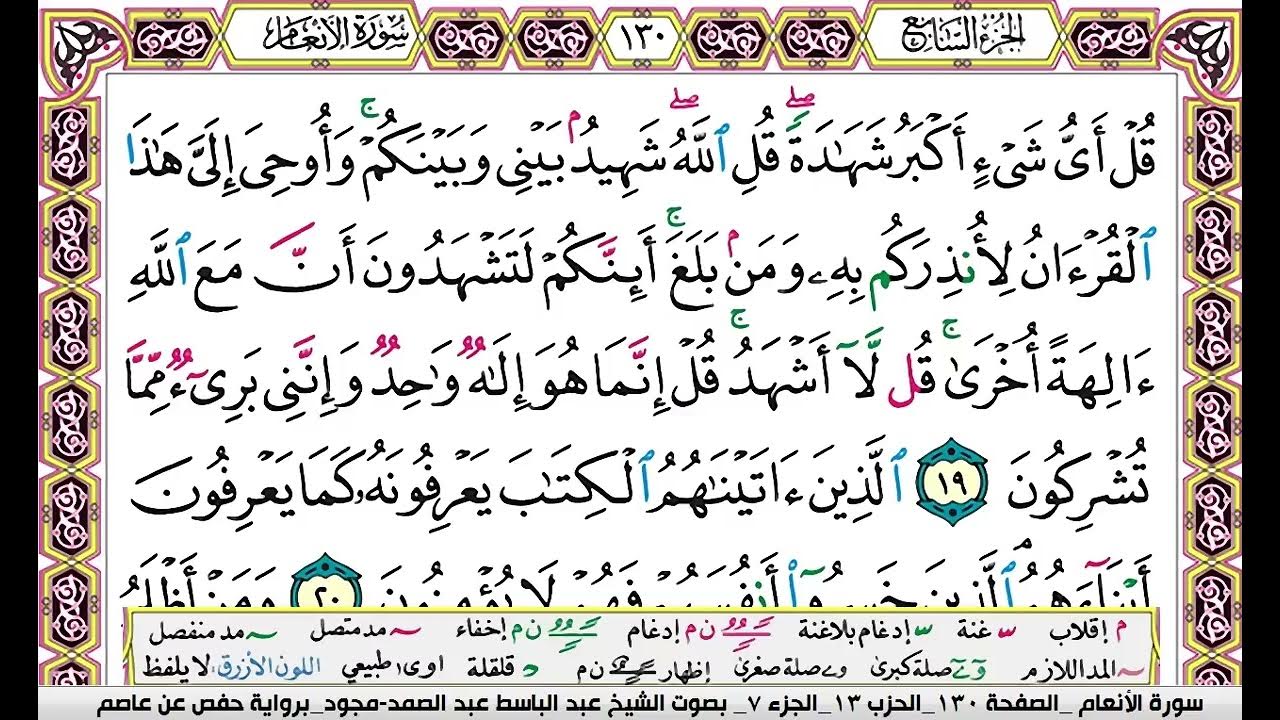 الجزء السابع
١٣٠
سورة الأنعام
قُلْ أَىُّ شَىْءٍ أَكْبَرُ شَهَـٰدَةً ۖ قُلِ ٱللَّهُ ۖ شَهِيدٌۢ بَيْنِى وَبَيْنَكُمْ ۚ وَأُوحِىَ إِلَىَّ هَـٰذَا
ٱلْقُرْءَانُ لِأُنذِرَكُم بِهِۦ وَمَنۢ بَلَغَ ۚ أَئِنَّكُمْ لَتَشْهَدُونَ أَنَّ مَعَ ٱللَّهِ
ءَالِهَةً أُخْرَىٰ ۚ قُل لَّآ أَشْهَدُ ۚ قُلْ إِنَّمَا هُوَ إِلَـٰهٌ وَٰحِدٌ وَإِنَّنِى بَرِىٓءٌ مِّمَّا
تُشْرِكُونَ ١٩ ٱلَّذِينَ ءَاتَيْنَـٰهُمُ ٱلْكِتَـٰبَ يَعْرِفُونَهُۥ كَمَا يَعْرِفُونَ
أَبْنَآءَهُمُ ۘ ٱلَّذِينَ خَسِرُوٓا۟ أَنفُسَهُمْ فَهُمْ لَا يُؤْمِنُونَ ٢٠ وَمَنْ أَظْلَمُ
م إقلاب ــّـ غنة ــّـ إدغام بلاغنة ن م إدغام ن م إخفاء ~ مد متصل ~ مد منفصل
~ المد اللازم و ے صلة كبرى و ے صلة صغرى إظهار ن م د قلقلة اوى طبيعي اللون الأزرق: لا يلفظ
سورة الأنعام _الصفحة ١٣٠_الحزب ١٣_الجزء ٧_ بصوت الشيخ عبد الباسط عبد الصمد-مجود_برواية حفص عن عاصم